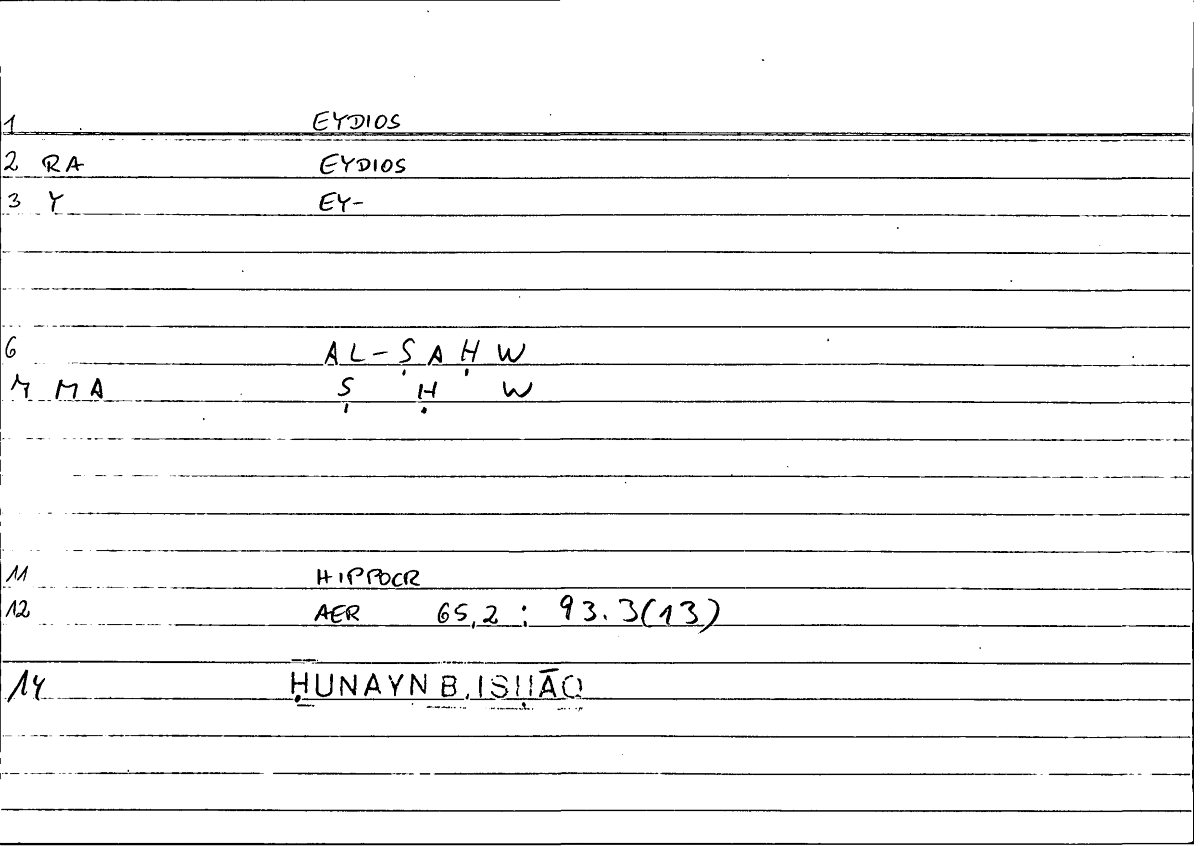 1 EYDIOS
2 RA EYDIOS
3 Y EY-
6 AL-ṢAḤW
7 MA Ṣ Ḥ W
11 HIPPOCR
12 AER 65,2 : 93.3(13)
14 ḤUNAYN B. ISḤĀQ